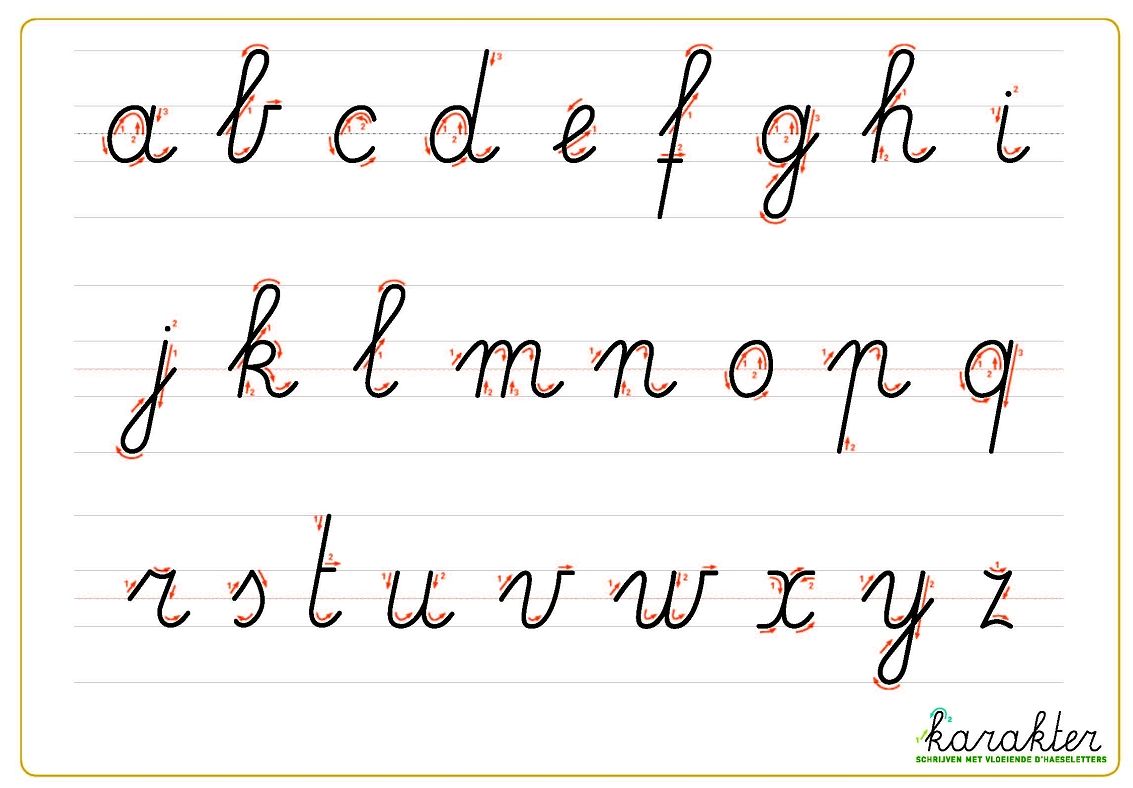 a b c d e f g h i
j k l m n o p q
r s t u v w x y z
karakter
SCHRIJVEN MET VLOEIENDE D'HAESELETTERS